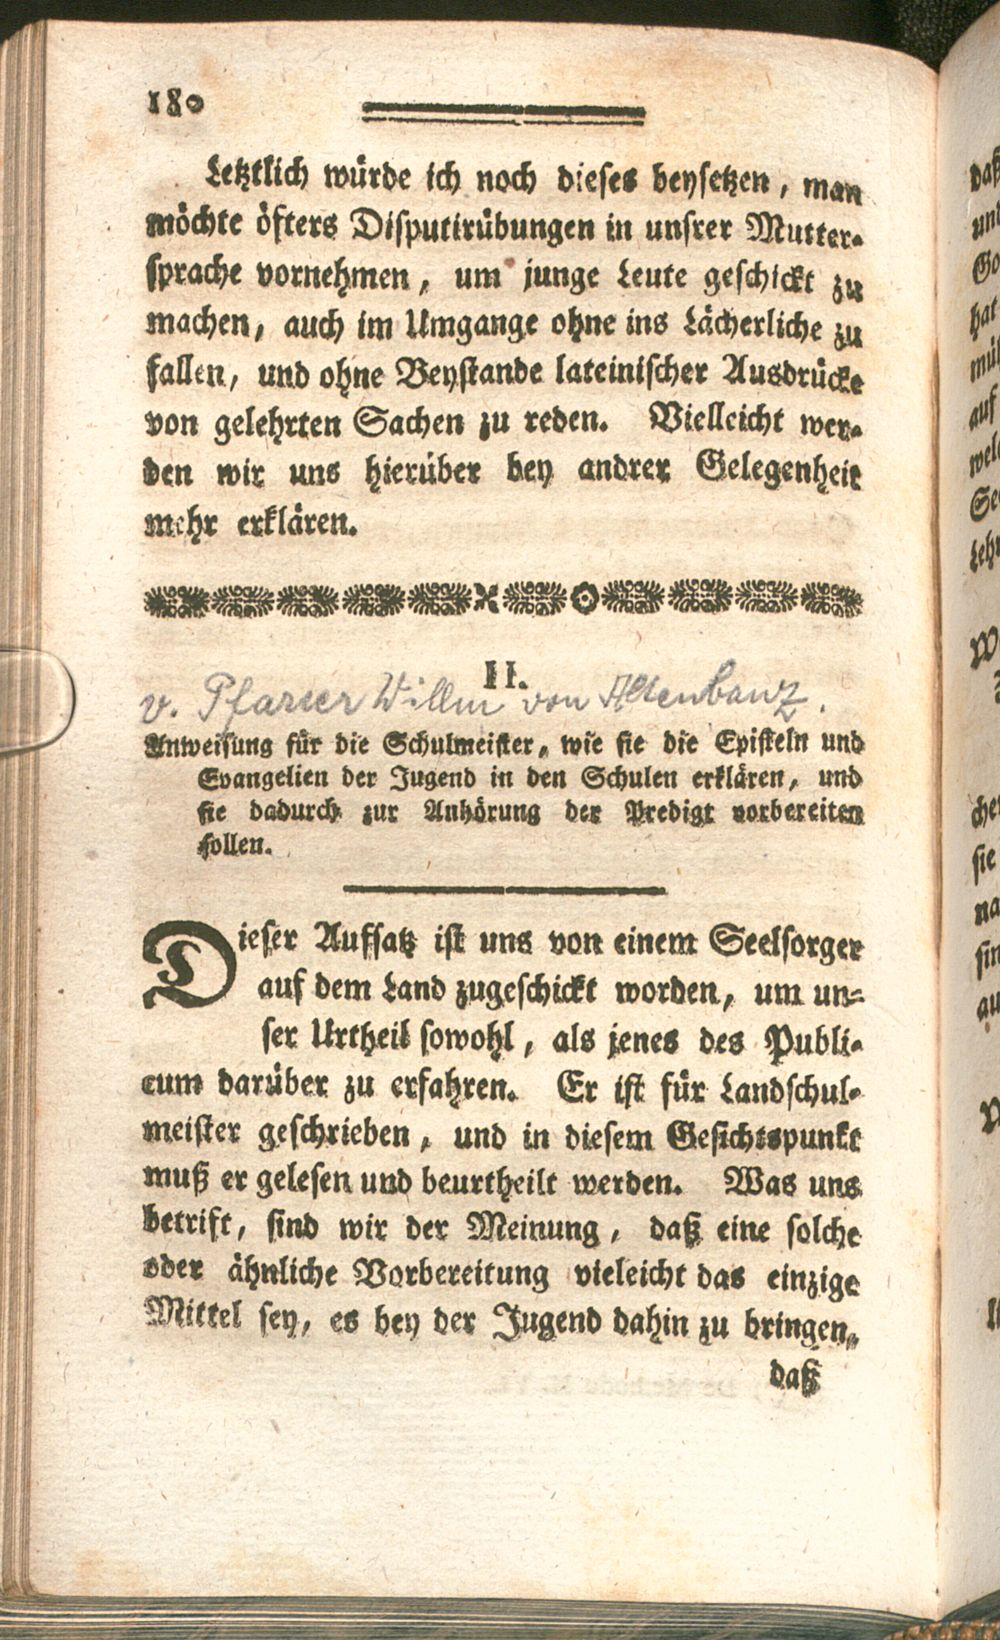 180
Letztlich würde ich noch dieses beysetzen, man
möchte öfters Disputirübungen in unsrer Mutter-
sprache vornehmen, um junge Leute geschickt zu
machen, auch im Umgange ohne ins Lächerliche zu
fallen, und ohne Beystande lateinischer Ausdrücke
von gelehrten Sachen zu reden. Vielleicht wer-
den wir uns hierüber bey andrer Gelegenheit
mehr erklären.
II.
v. Pfarrer Willm von Altenbanz.
Anweisung für die Schulmeister, wie sie die Episteln und
Evangelien der Jugend in den Schulen erklären, und
sie dadurch zur Anhörung der Predigt vorbereiten
sollen.
Dieser Aufsatz ist uns von einem Seelsorger
auf dem Land zugeschickt worden, um un-
ser Urtheil sowohl, als jenes des Publi-
cum darüber zu erfahren. Er ist für Landschul-
meister geschrieben, und in diesem Gesichtspunkt
muß er gelesen und beurtheilt werden. Was uns
betrift, sind wir der Meinung, daß eine solche
oder ähnliche Vorbereitung vieleicht das einzige
Mittel sey, es bey der Jugend dahin zu bringen,
daß